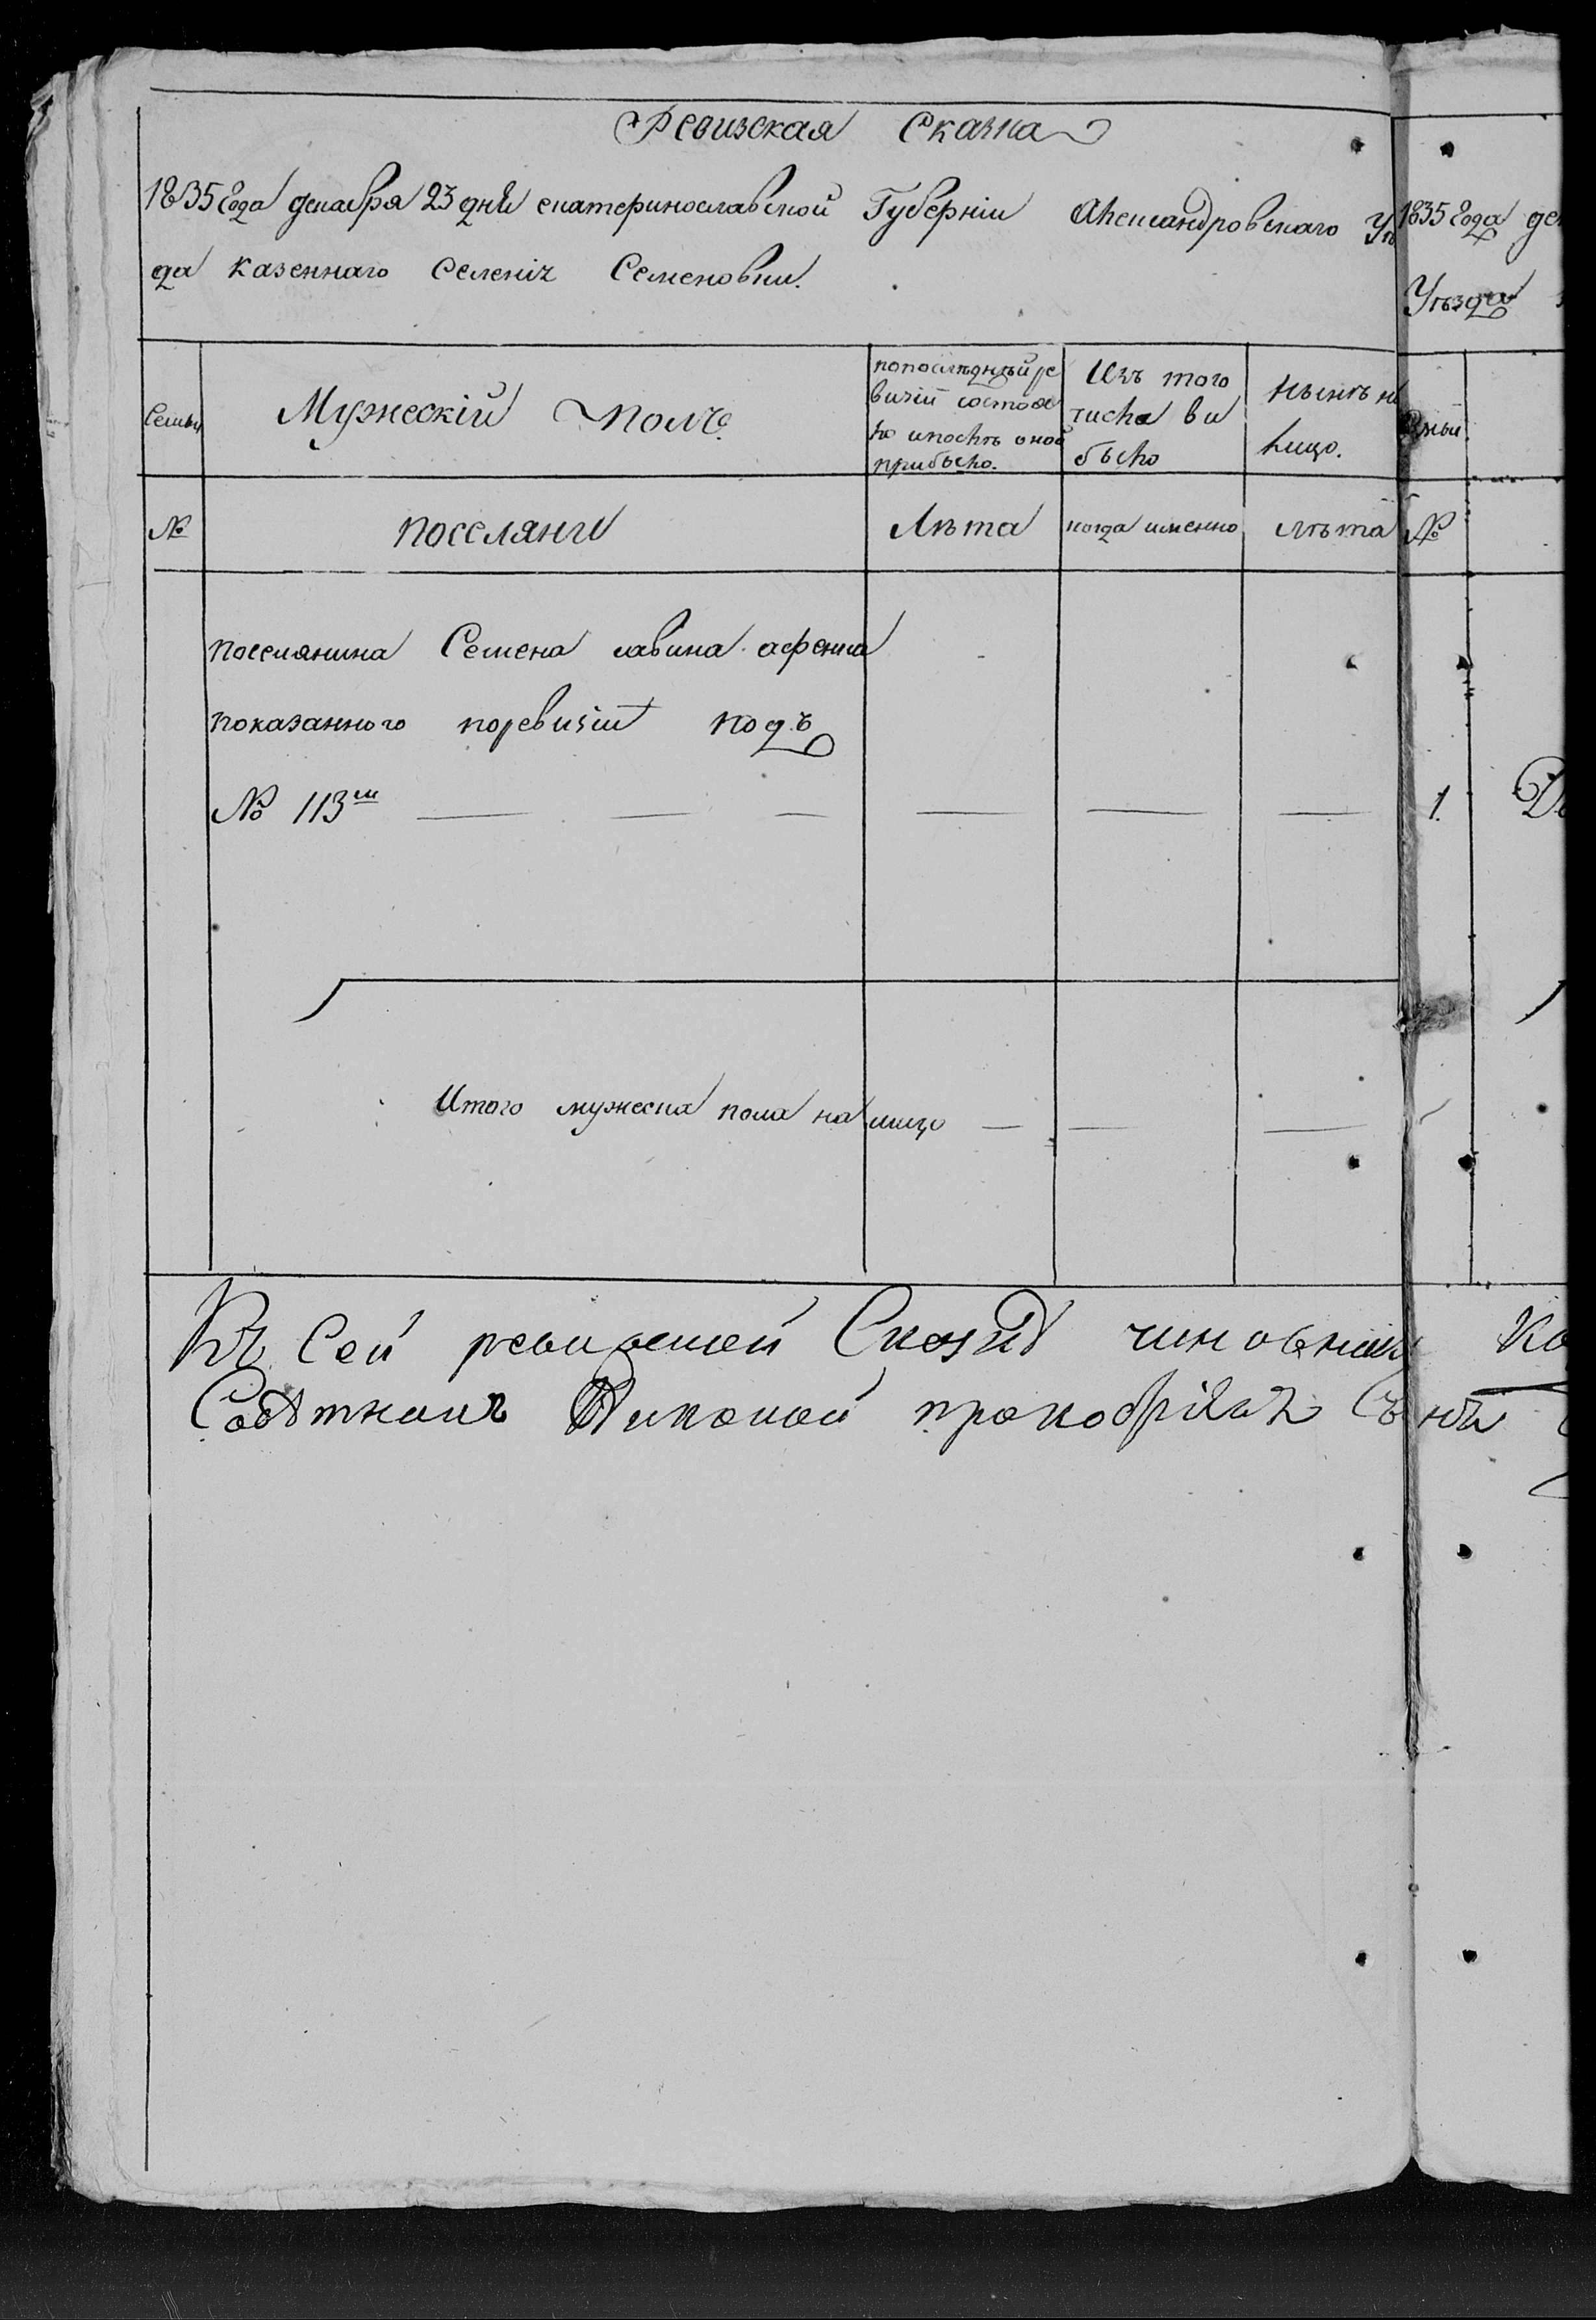 Ревизская Сказка
1835 года декабря 23 дня екатеринославской Губерніи Александровскаго Уѣз
да казеннаго Селенія Семеновки.
Семьи
Мужескій полъ
попоследнѣй ре
визіи состоя
ло ипослѣ оной
прибыло.
Изъ того
числа ви
было
нынѣ на
лицо.
№
поселяне
Лѣта
когда именно
лѣта
поселянина Семена савина
показанного поревизіи подъ
№ 113м
Итого мужеска пола на лицо
Къ Сей ревизской Сказки чиновник
1835 года де
Уѣзда
№
1.